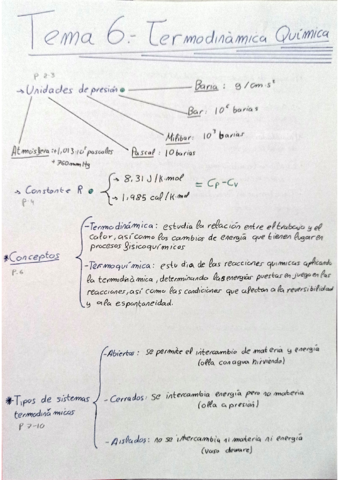 Tema 6.- Termodinámica Química
P 2-3
→ Unidades de presión
Baria: g/cm·s²
Bar: 10⁶ barias
Milibar: 10³ barias
Pascal: 10 barias
Atmósfera: 1,013·10⁵ pascales
760 mmHg
→ Constante R
P. 4
→ 8.31 J/K·mol
→ 1.985 cal/K·mol
= Cp - Cv
Conceptos
P. 6
- Termodinámica: estudia la relación entre el trabajo y el
calor, así como los cambios de energía que tienen lugar en
procesos fisicoquímicos
- Termoquímica: estudia de las reacciones químicas aplicando
la termodinámica, determinando las energías puestas en juego en las
reacciones, así como las condiciones que afectan a la reversibilidad
y a la espontaneidad.
Tipos de sistemas
termodinámicos
P 7-10
- Abiertos: se permite el intercambio de materia y energía
(olla con agua hirviendo)
- Cerrados: Se intercambia energía pero no materia
(olla a presión)
- Aislados: no se intercambia ni materia ni energía
(vaso dewar)